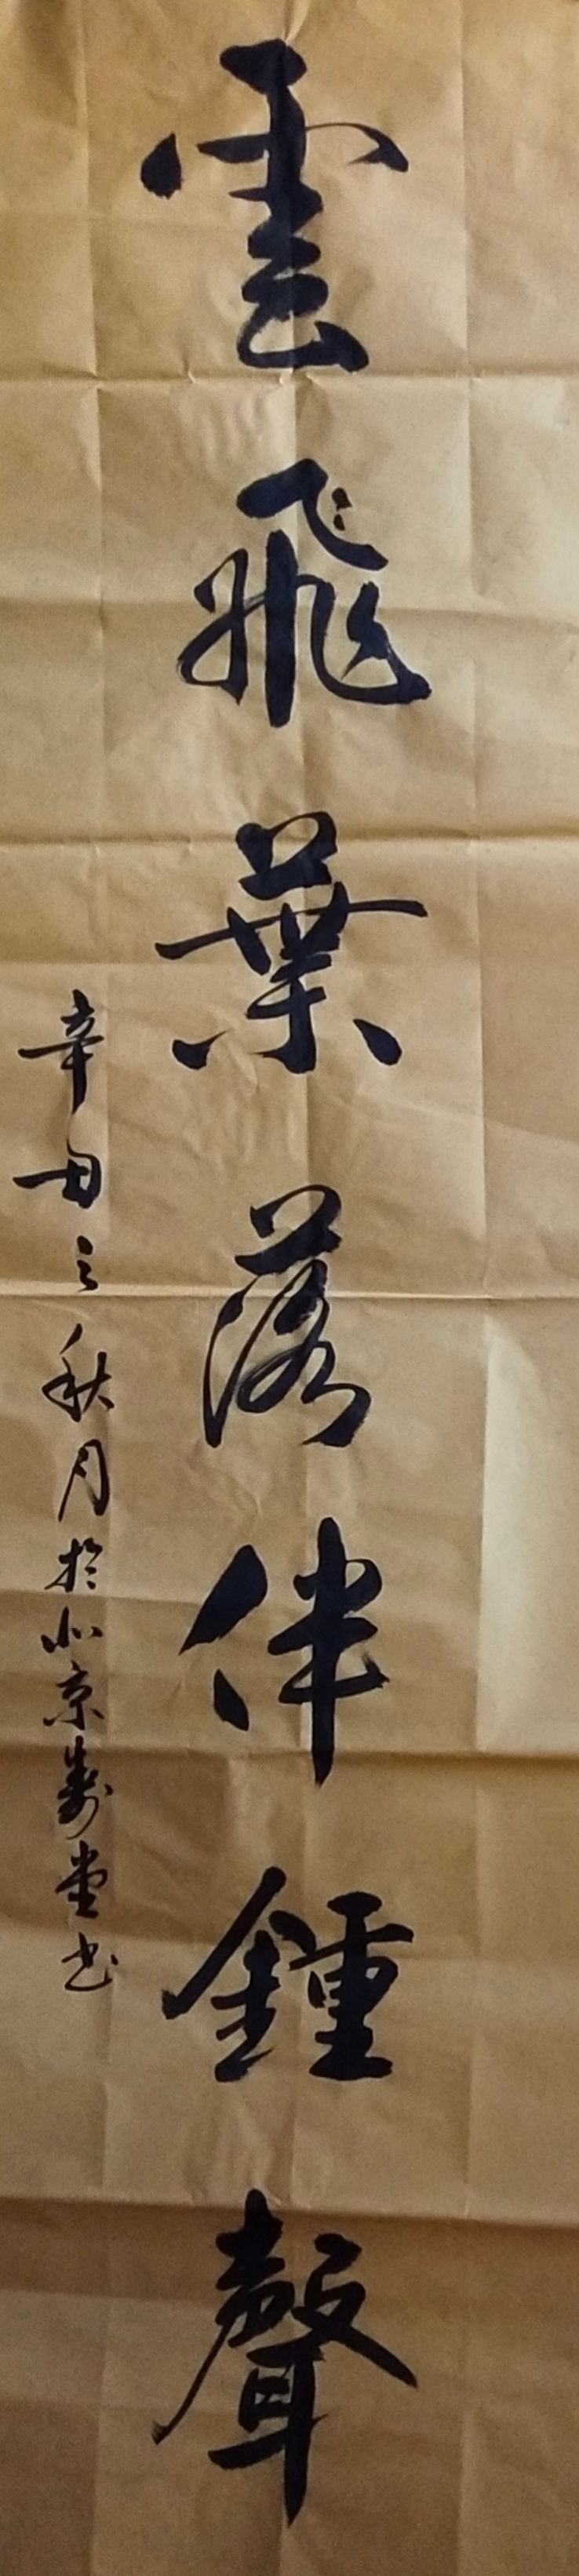 雲飛葉落伴鍾聲
辛丑之秋月於北京壽堂书